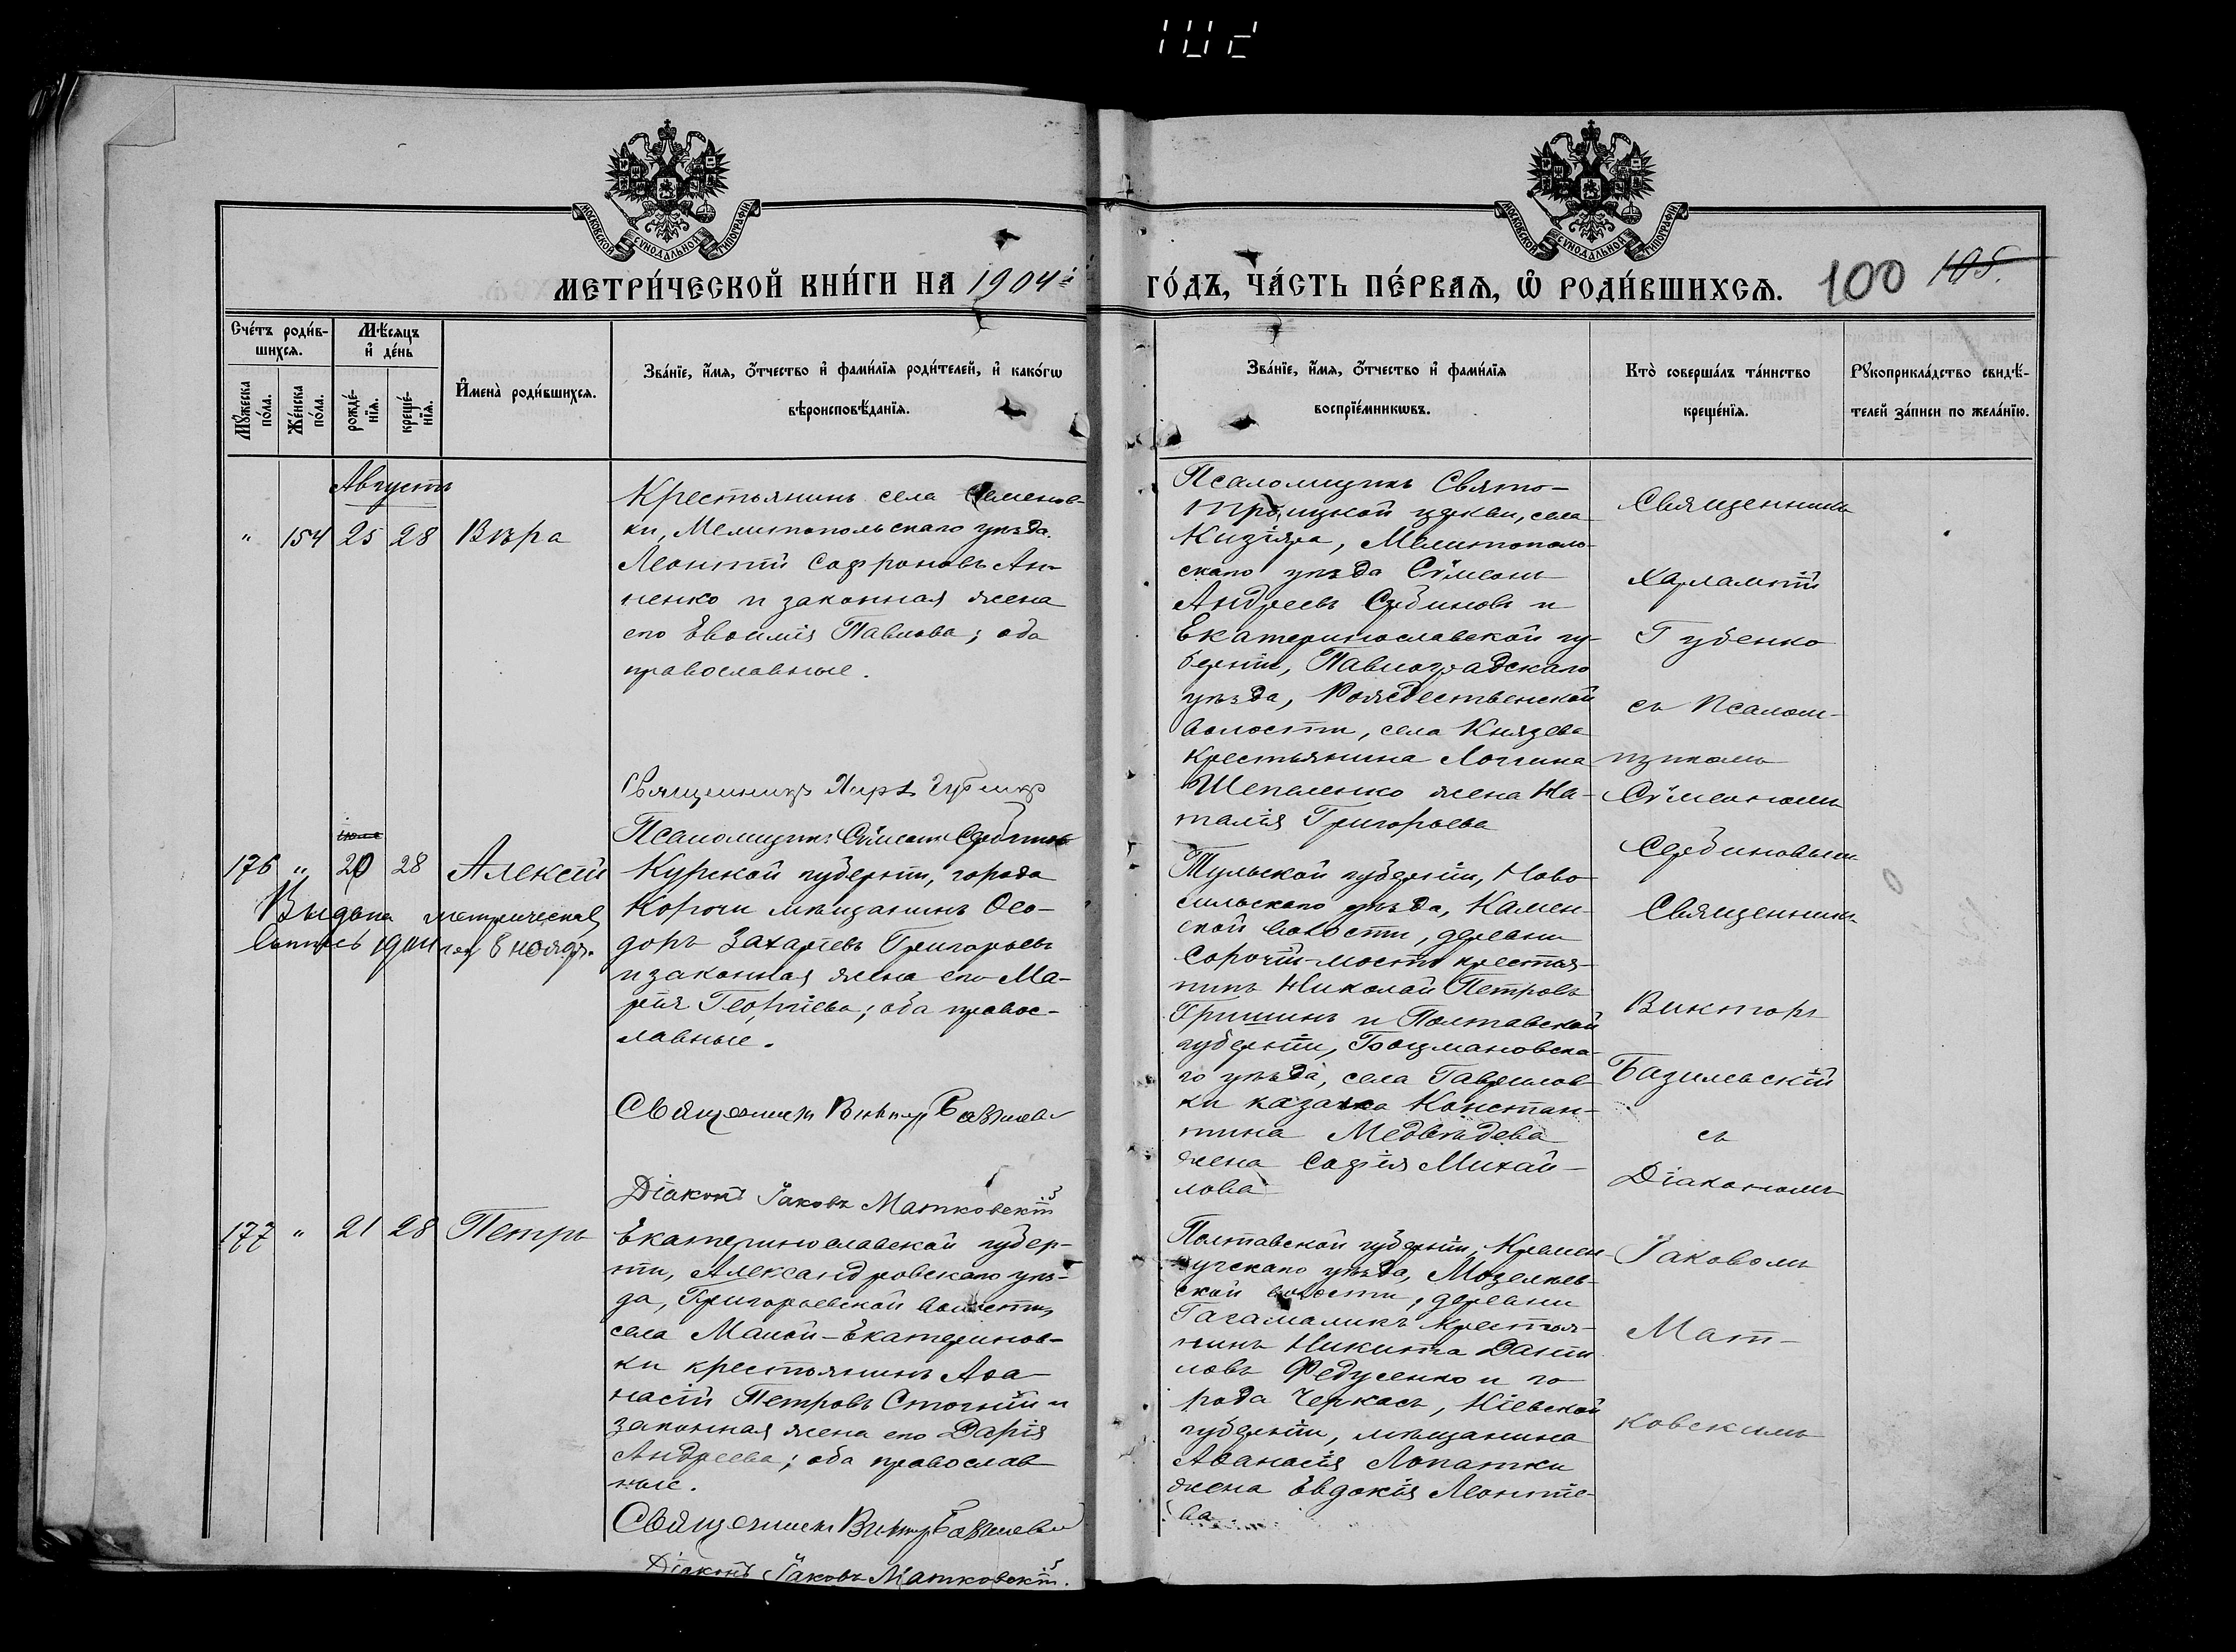 102
МОСКОВСКОЙ СѴНОДАЛЬНОЙ ТИПОГРАФІИ
МОСКОВСКОЙ СѴНОДАЛЬНОЙ ТИПОГРАФІИ
МЕТРИ́ЧЕСКОЙ КНИ́ГИ НА 1904й
ГО́ДЪ, ЧА́СТЬ ПЕ́РВАЯ, Ѡ РОДИ́ВШИХСѦ. 100 105.
Сче́тъ роди́в-
шихсѧ.
Мѣ́сѧцъ
и҆ де́нь
Мꙋ́жеска
по́ла.
Же́нска
по́ла.
рожде́-
нїѧ.
креще́-
нїѧ.
И҆мена̀ роди́вшихсѧ.
Зва́нїе, и҆́мѧ, ѻ҆́тчество и҆ фами́лїѧ роди́телей, и҆ како́гѡ
вѣроисповѣ́данїѧ.
Зва́нїе, и҆́мѧ, ѻ҆́тчество и҆ фами́лїѧ
воспрїе́мникѡвъ.
Кто̀ соверша́лъ та́инство
креще́нїѧ.
Рꙋкоприкла́дство свидѣ́-
телей за́писи по жела́нїю.
Августъ
" 154 25 28 Вѣра
Крестьянинъ села Семенов-
ки, Мелитопольскаго уѣзда.
Леонтій Софроновъ Ан-
ненко и законная жена
его Евѳимія Павлова; оба
православные.
Священникъ Хар.
Псаломщикъ Сѵмеонъ Сербиновъ
Псаломщикъ Свято-
Троицкой церкви, села
Кизіяра, Мелитополь-
скаго уѣзда Сѵмеонъ
Андреевъ Сербиновъ и
Екатеринославской гу-
берніи, Павлоградскаго
уѣзда, Рождественской
волости, села Князева
крестьянина Логгина
Шепеленко жена На-
талія Григорьева
Священникъ
Харлампій
Губенко
съ Псалом-
щикомъ
Сѵмеономъ
Сербиновымъ
176 " 20 28 Алексій
Выдана метрическая
выпись 1904 год 8 ноября.
Курской губерніи, города
Корочи мѣщанинъ Ѳео-
доръ Захаріевъ Григорьевъ
и законная жена его Ма-
рія Георгіева; оба правос-
лавные.
Священникъ Викторъ
Діаконъ Іаковъ Матковскій
Тульской губерніи, Ново-
сильскаго уѣзда, Камен-
ской волости, деревни
Сорочій-мостъ крестья-
нинъ Николай Петровъ
Гришинъ и Полтавской
губерніи,
го уѣзда, села Гаврилов-
ки казака Констан-
тина Медвѣдева
жена Софія Михай-
лова
Священникъ
Викторъ
Базилевскій
съ
Діакономъ
Іаковомъ
Мат-
ковскимъ
177 " 21 28 Петръ
Екатеринославской губер-
ніи, Александровскаго уѣз-
да, Григорьевской волости,
села Малой-Екатеринов-
ки крестьянинъ Аѳа-
насій Петровъ Стогній и
законная жена его Дарія
Андреева; оба православ-
ные.
Священникъ Викторъ
Діаконъ Іаковъ Матковскій.
Полтавской губерніи, Кремен-
чугскаго уѣзда,
ской волости, деревни
крестья-
нинъ Никита Дани-
ловъ Федусенко и го-
рода Черкасъ, Кіевской
губерніи, мѣщанина
Аѳанасія Лопатки
жена Евдокія Леонтіе-
ва.